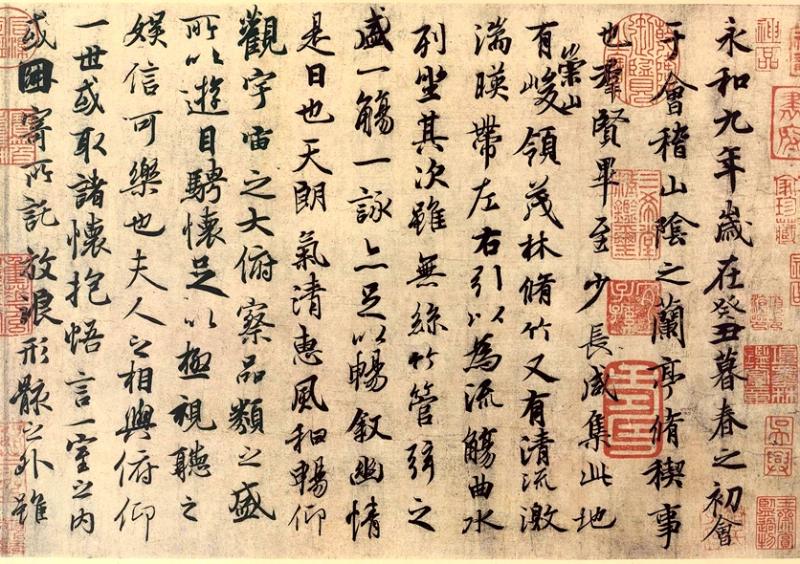 永和九年歲在癸丑暮春之初會
于會稽山陰之蘭亭脩稧事
也羣賢畢至少長咸集此地
有崇山峻領茂林脩竹又有清流激
湍暎帶左右引以為流觴曲水
列坐其次雖無絲竹管弦之
盛一觴一詠亦足以暢叙幽情
是日也天朗氣清惠風和暢仰
觀宇宙之大俯察品類之盛
所以遊目騁懷足以極視聽之
娛信可樂也夫人之相與俯仰
一世或取諸懷抱悟言一室之內
或因寄所託放浪形骸之外雖
神品